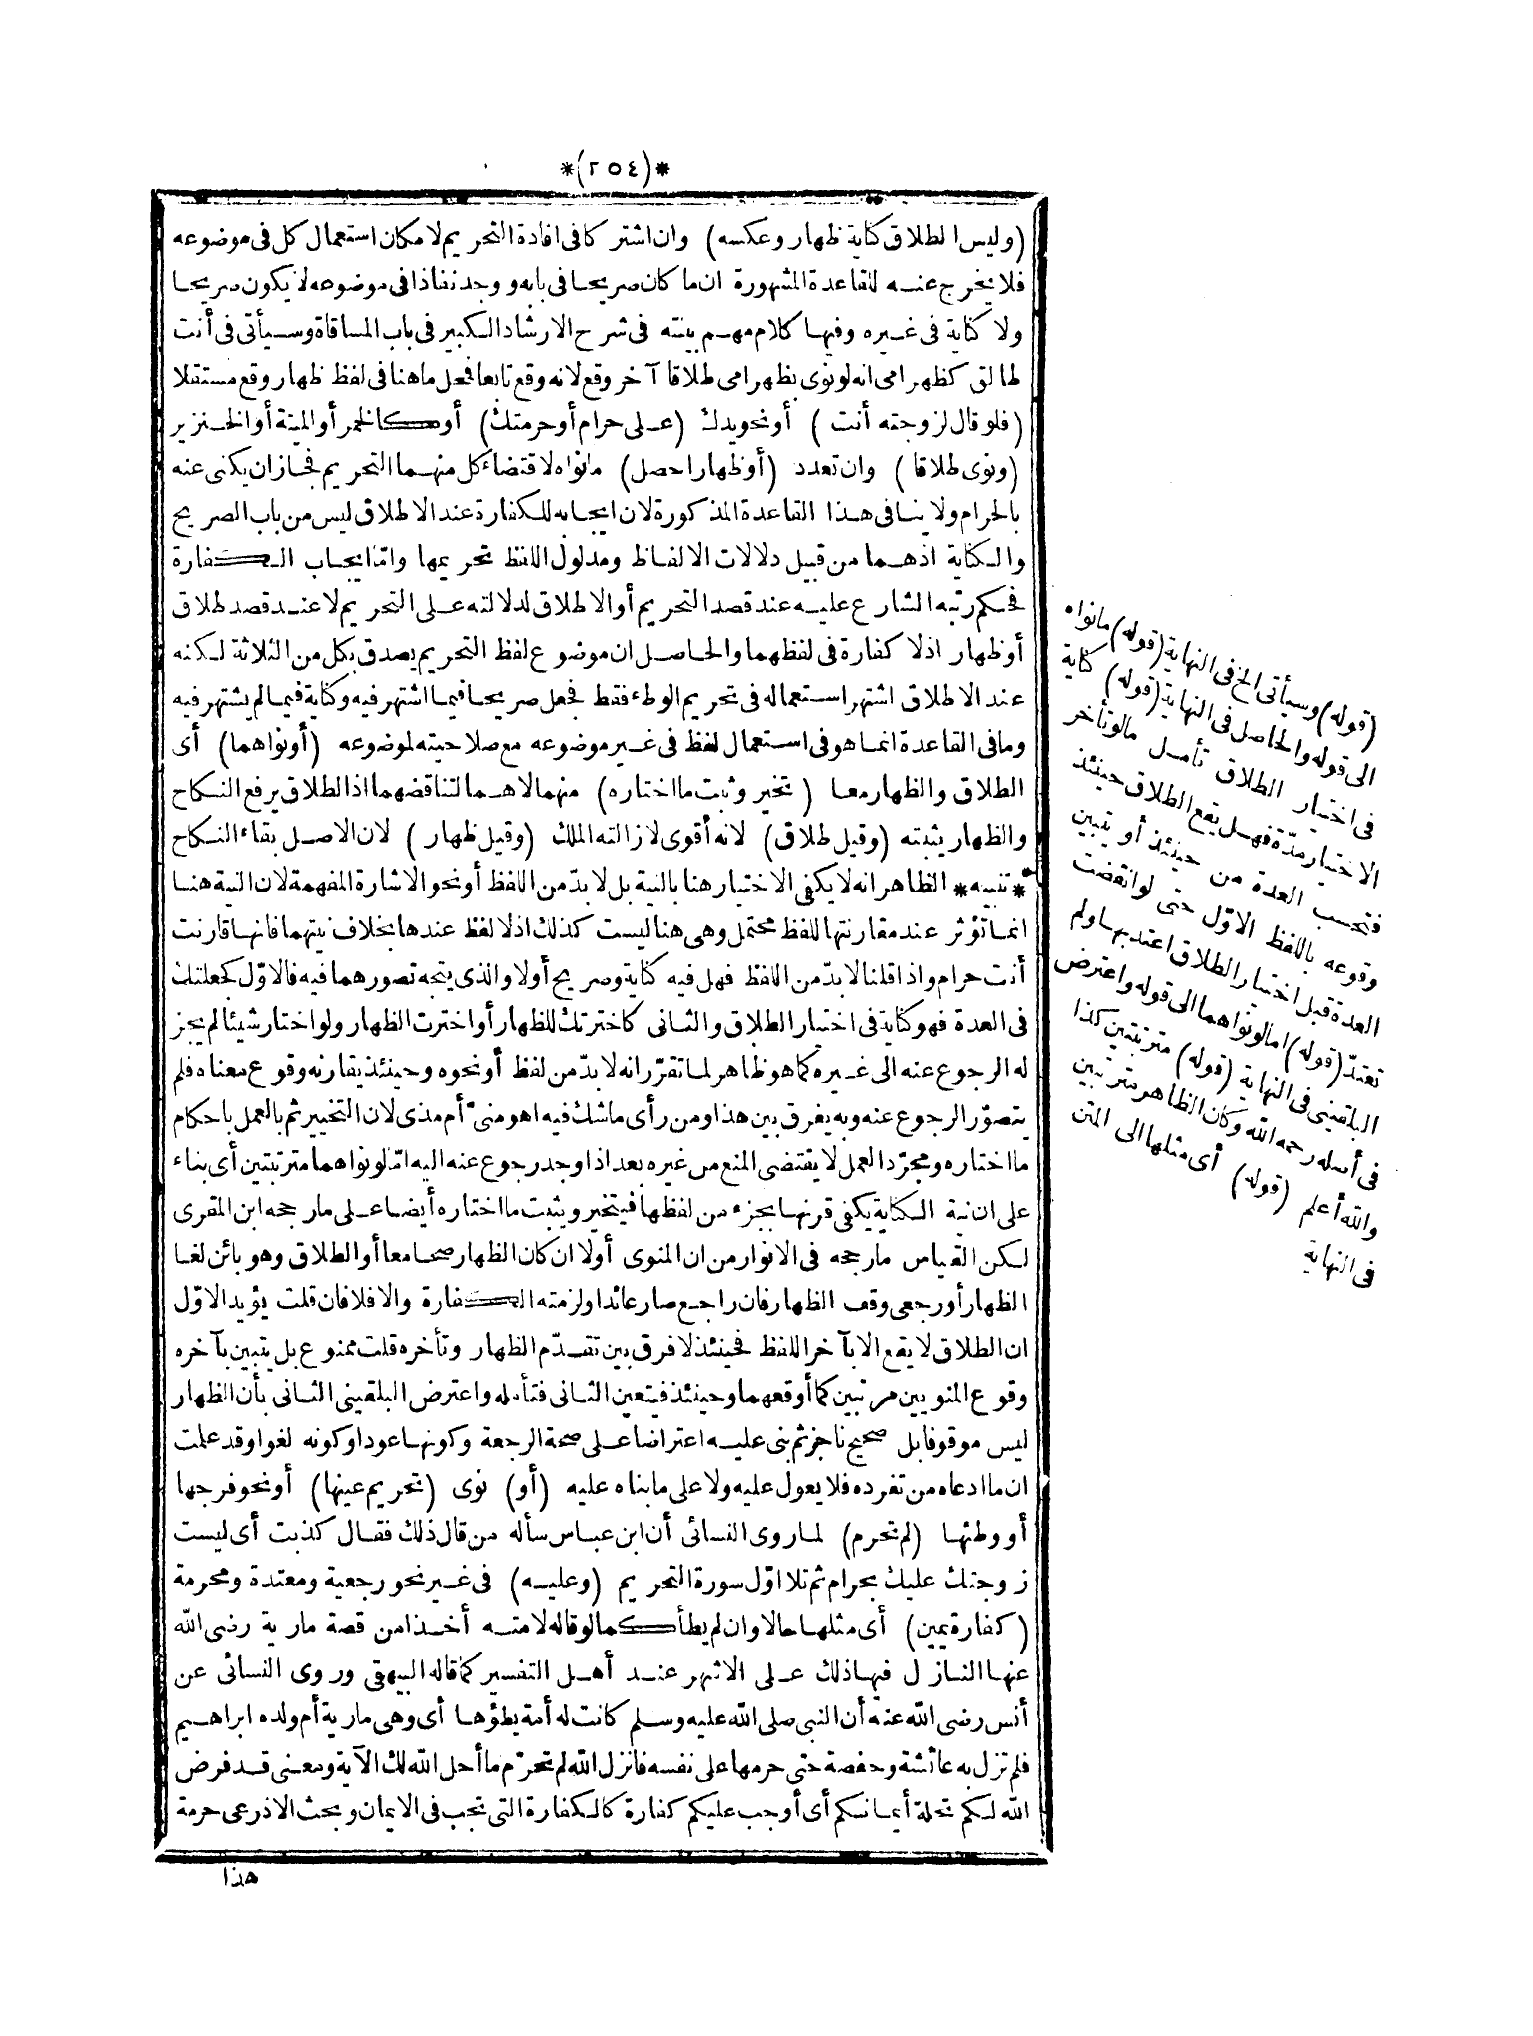 *(٢٥٤)*
(وليس الطلاق كناية ظهار وعكسه) وان اشتركا فى افادة التحريم لامكان استعمال كل فى موضوعه
فلا يخرج عنه للقاعدة المشهورة ان ما كان صريحا فى بابه ووجد نفاذا فى موضوعه لا يكون صريحا
ولا كناية فى غيره وفيها كلام مهم بينته فى شرح الارشاد الكبير فى باب المساقاة وسيأتى فى أنت
طالق كظهر امى انه لو نوى بظهر امى طلاقا آخر وقع لانه وقع تابعا فحمل ما هنا فى لفظ ظهار وقع مستقلا
(فلو قال لزوجته أنت) أو نحو يدك (على حرام أو حرمتك) أو كالخمر أو الميتة أو الخنزير
(ونوى طلاقا) وان تعدد (أو ظهارا حصل) ما نواه لاقتضاء كل منهما التحريم فجاز ان يكنى عنه
بالحرام ولا ينافى هذا القاعدة المذكورة لان ايجابه للكفارة عند الاطلاق ليس من باب الصريح
والكناية اذ هما من قبيل دلالات الالفاظ ومدلول اللفظ تحريمها وامّا ايجاب الكفارة
فحكم رتبه الشارع عليه عند قصد التحريم أو الاطلاق لدلالته على التحريم لا عند قصد طلاق
أو ظهار اذ لا كفارة فى لفظهما والحاصل ان موضوع لفظ التحريم يصدق بكل من الثلاثة لكنه
عند الاطلاق اشتهر استعماله فى تحريم الوطء فقط فجعل صريحا فيما اشتهر فيه وكناية فيما لم يشتهر فيه
وما فى القاعدة انما هو فى استعمال لفظ فى غير موضوعه مع صلاحيته لموضوعه (أو نواهما) أى
الطلاق والظهار معا (تخير وثبت ما اختاره) منهما لا هما لتناقضهما اذ الطلاق يرفع النكاح
والظهار يثبته (وقيل طلاق) لانه أقوى لازالته الملك (وقيل ظهار) لان الاصل بقاء النكاح
*تنبيه* الظاهر انه لا يكفى الاختيار هنا بالنية بل لا بدّ من اللفظ أو نحو الاشارة المفهمة لان النية هنا
انما تؤثر عند مقارنتها للفظ محتمل وهى هنا ليست كذلك اذ لا لفظ عندها بخلاف نيتهما فانها قارنت
أنت حرام واذا قلنا لا بدّ من اللفظ فهل فيه كناية وصريح أو لا والذى يتجه تصورهما فيه فالاوّل كجعلتك
فى العدة فهو كناية فى اختيار الطلاق والثانى كاخترتك للظهار أو اخترت الظهار ولو اختار شيئا لم يجز
له الرجوع عنه الى غيره كما هو ظاهر لما تقرّر انه لا بدّ من لفظ أو نحوه وحينئذ يقارنه وقوع معناه فلم
يتصوّر الرجوع عنه وبه يفرق بين هذا ومن رأى ما شك فيه اهو منىّ أم مذى لان التخيير ثم بالعمل باحكام
ما اختاره ومجرّد العمل لا يقتضى المنع من غيره بعد اذا وجد رجوع عنه اليه امّا لو نواهما مترتبتين أى بناء
على ان نية الكناية يكفى قرنها بجزء من لفظها فيتخير ويثبت ما اختاره أيضا على مارجحه ابن المقرى
لكن القياس مارجحه فى الانوار من ان المنوى أولا ان كان الظهار صحا معا أو الطلاق وهو بائن لغا
الظهار أو رجعى وقف الظهار فان راجع صار عائدا ولزمته الكفارة والا فلا فان قلت يؤيد الاوّل
ان الطلاق لا يقع الا بآخر اللفظ فحينئذ لا فرق بين تقدّم الظهار وتأخره قلت ممنوع بل يتبين بآخره
وقوع المنويين مرتبين كما أوقعهما وحينئذ فيتعين الثانى فتأمله واعترض البلقينى الثانى بأن الظهار
ليس موقوفا بل صحيح ناجز ثم بنى عليه اعتراضا على صحة الرجعة وكونها عودا وكونه لغوا وقد علمت
ان ما ادعاه من تفرده فلا يعول عليه ولا على ما بناه عليه (أو) نوى (تحريم عينها) أو نحو فرجها
أو وطئها (لم تحرم) لما روى النسائى أن ابن عباس سأله من قال ذلك فقال كذبت أى ليست
زوجتك عليك بحرام ثم تلا اوّل سورة التحريم (وعليه) فى غير نحو رجعية ومعتدة ومحرمة
(كفارة يمين) أى مثلها حالا وان لم يطأ كما لو قاله لامته أخذا من قصة مارية رضى الله
عنها النازل فيها ذلك على الاشهر عند أهل التفسير كما قاله البيهقى وروى النسائى عن
أنس رضى الله عنه أن النبى صلى الله عليه وسلم كانت له أمة يطؤها أى وهى مارية أم ولده ابراهيم
فلم تزل به عائشة وحفصة حتى حرمها على نفسه فانزل الله لم تحرّم ما أحل الله لك الآية ومعنى قد فرض
الله لكم تحلة أيمانكم أى أوجب عليكم كفارة كالكفارة التى تجب فى الايمان وبحث الاذرعى حرمة
هذا
(قوله) وسيأتى الخ فى النهاية (قوله) ما نواه
الى قوله والحاصل فى النهاية (قوله) كناية
فى اختيار الطلاق تأمل مالو تأخر
الاختيار مدّة فهل يقع الطلاق حينئذ
فتحسب العدة من حينئذ أو يتبين
وقوعه باللفظ الاوّل حتى لو انقضت
العدة قبل اختيار الطلاق اعتد بها ولم
تعتدّ (قوله) امالو نواهما الى قوله واعترض
البلقينى فى النهاية (قوله) مترتبتين كذا
فى أصله رحمه الله وكان الظاهر مترتبين
والله أعلم (قوله) أى مثلها الى المتن
فى النهاية